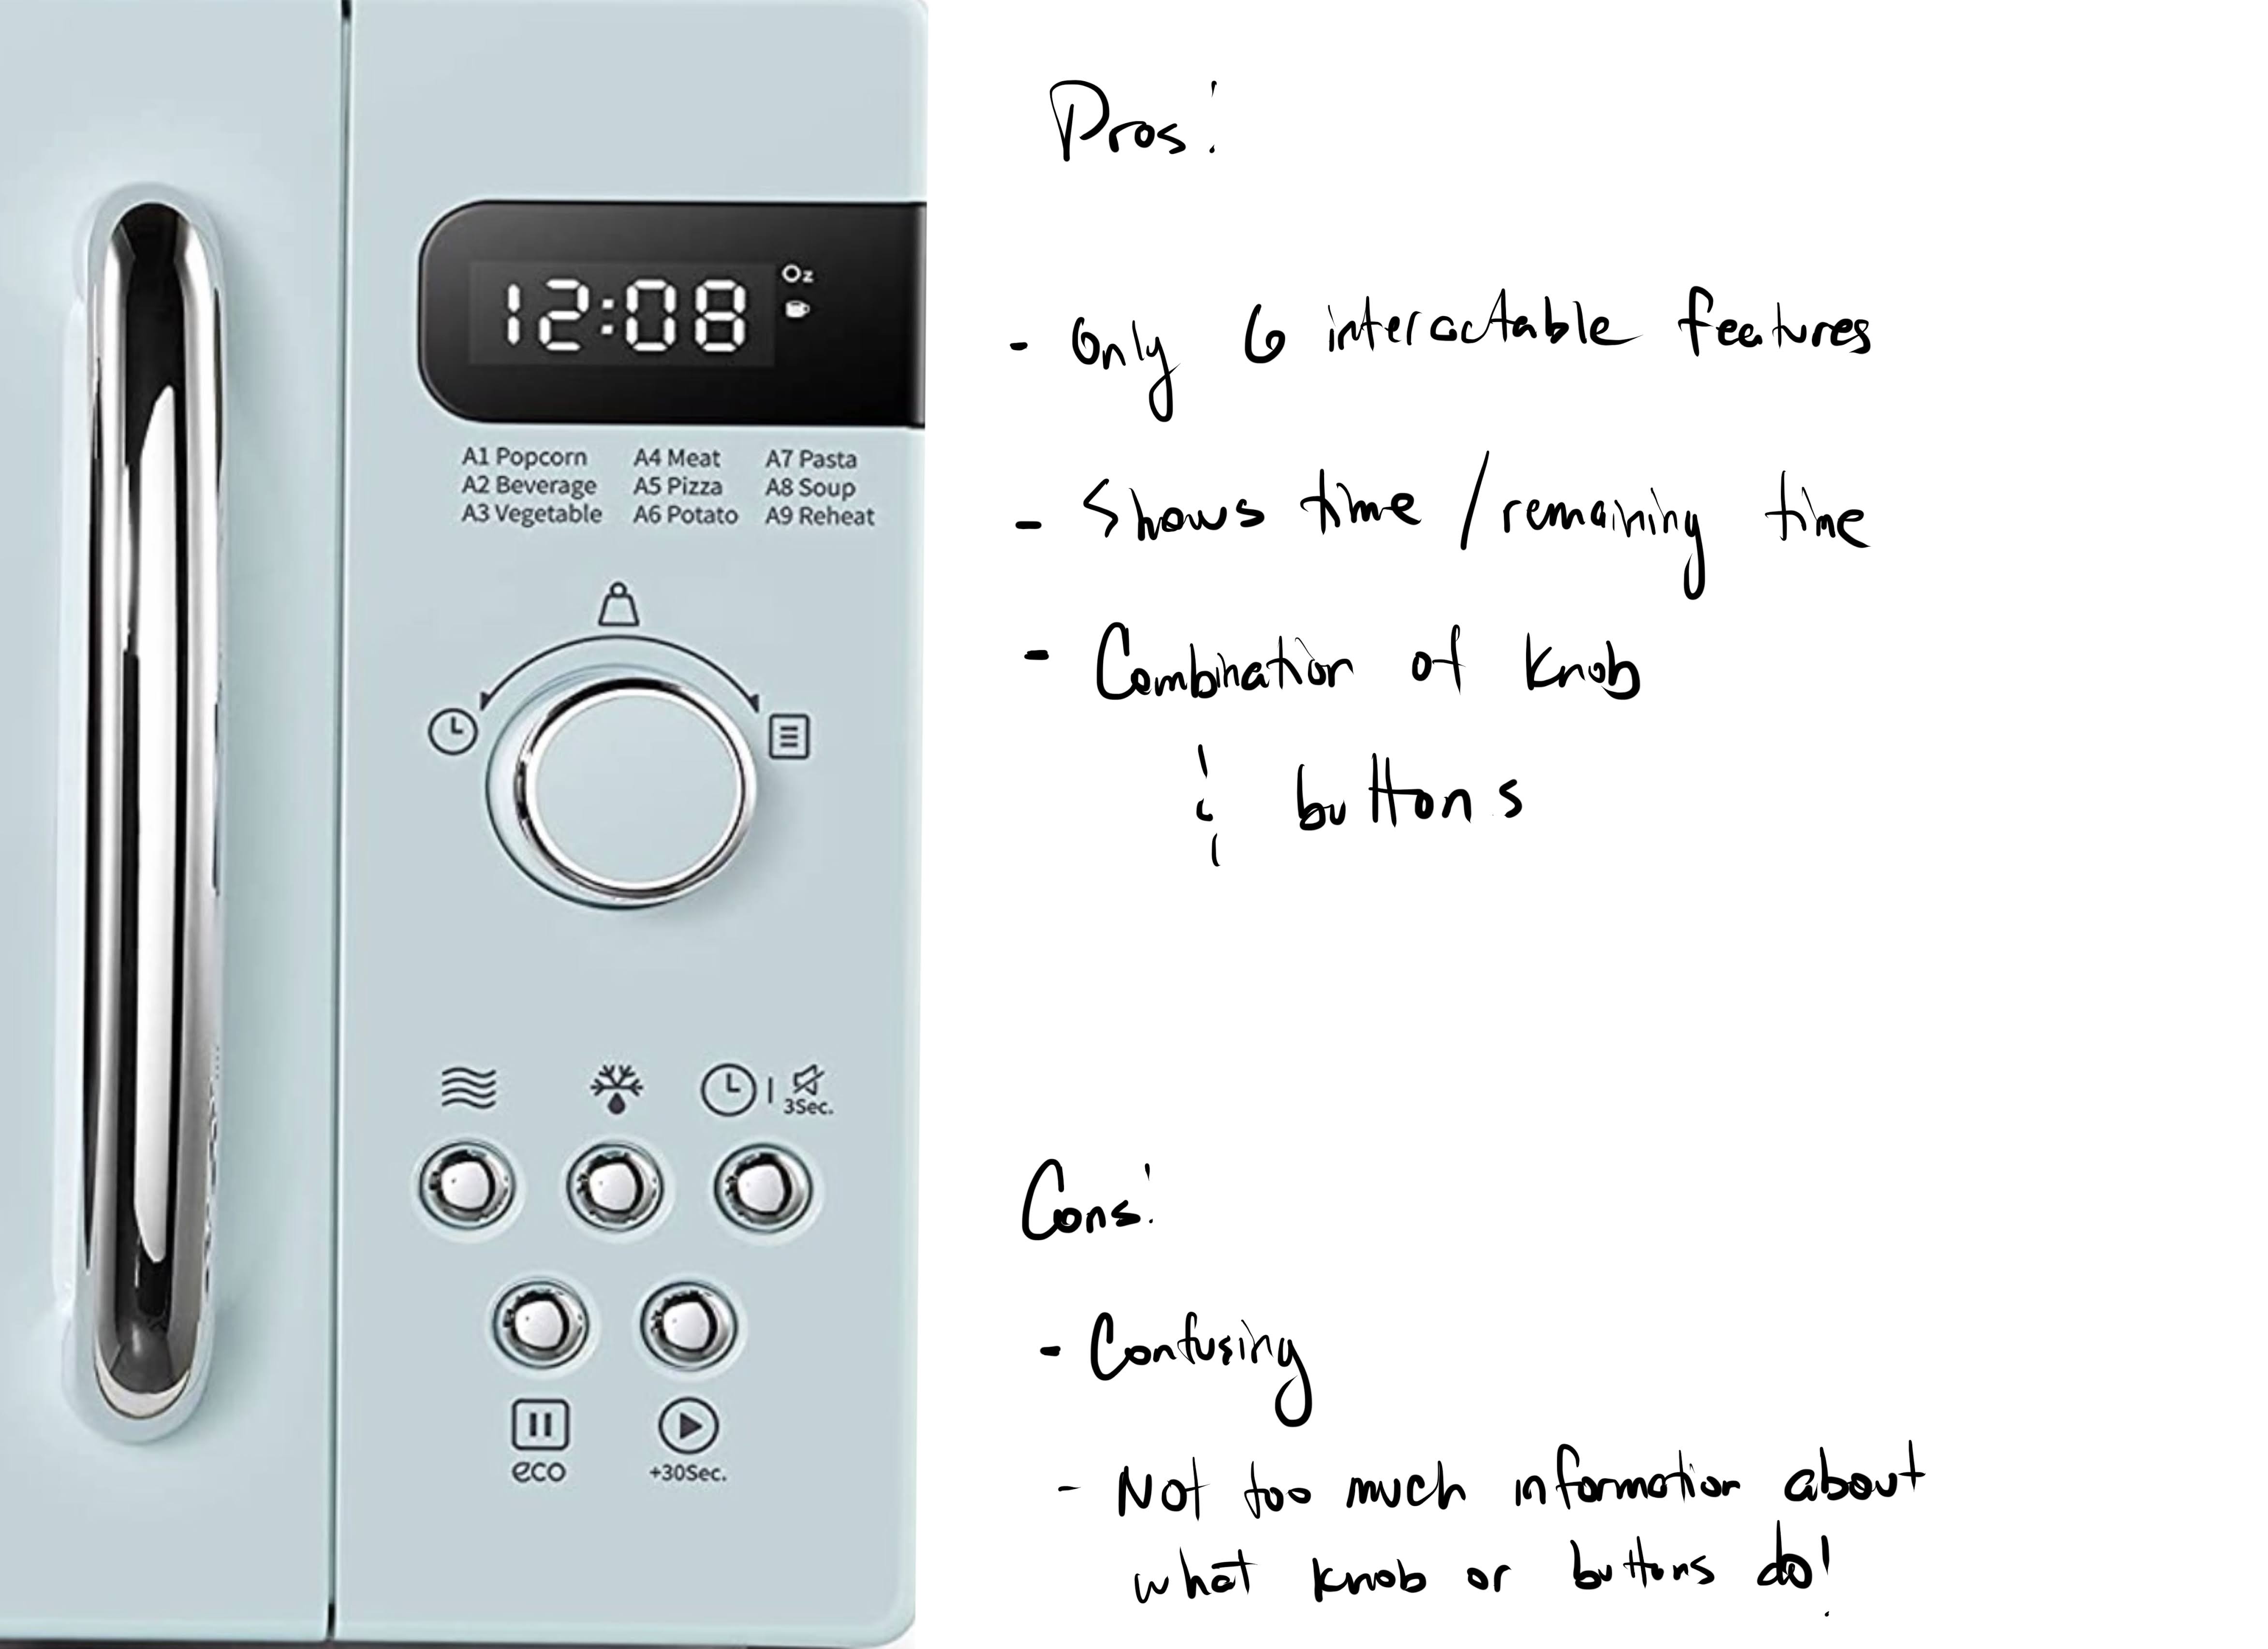 12:08
Oz
A1 Popcorn A4 Meat A7 Pasta
A2 Beverage A5 Pizza A8 Soup
A3 Vegetable A6 Potato A9 Reheat
3Sec.
eco
+30Sec.
Pros:
- Only 6 interactable features
- Shows time / remaining time
- Combination of knob
& buttons
Cons:
- Confusing
- Not too much information about
what knob or buttons do!